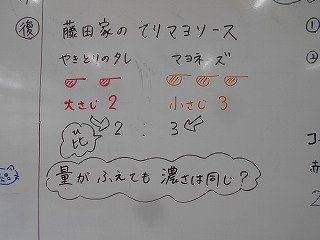 復 藤田家のてりマヨソース
やきとりのタレ マヨネーズ
大さじ 2 小さじ 3
比 2 : 3
量がふえても濃さは同じ?
①
コ
赤
2